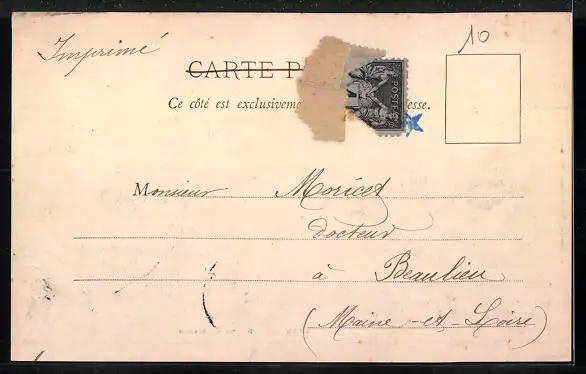 Imprimé
10
CARTE P
POSTE
Ce côté est exclusiveme esse.
Monsieur Moricet
docteur
à Beaulieu
(Maine-et-Loire)